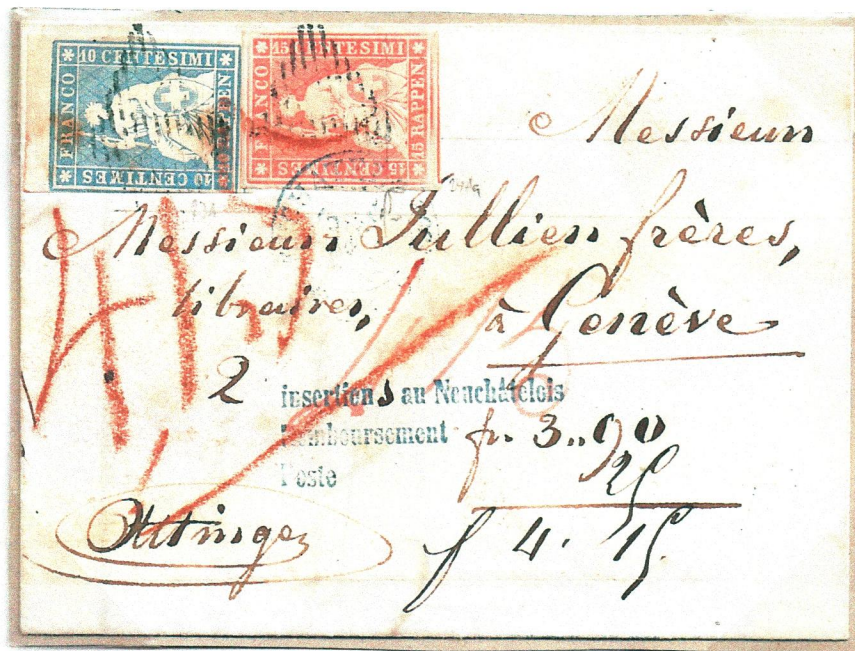 10 CENTESIMI
FRANCO
10 CENTIMES
15 CENTESIMI
FRANCO
15 RAPPEN.
15 CENTIMES
Messieurs
Messieurs Jullien frères,
libraires,
à Genève
2 insertions au Neuchâtelois
Remboursement fr. 3.,90
Poste 25
f 4. 15
415
Attinger